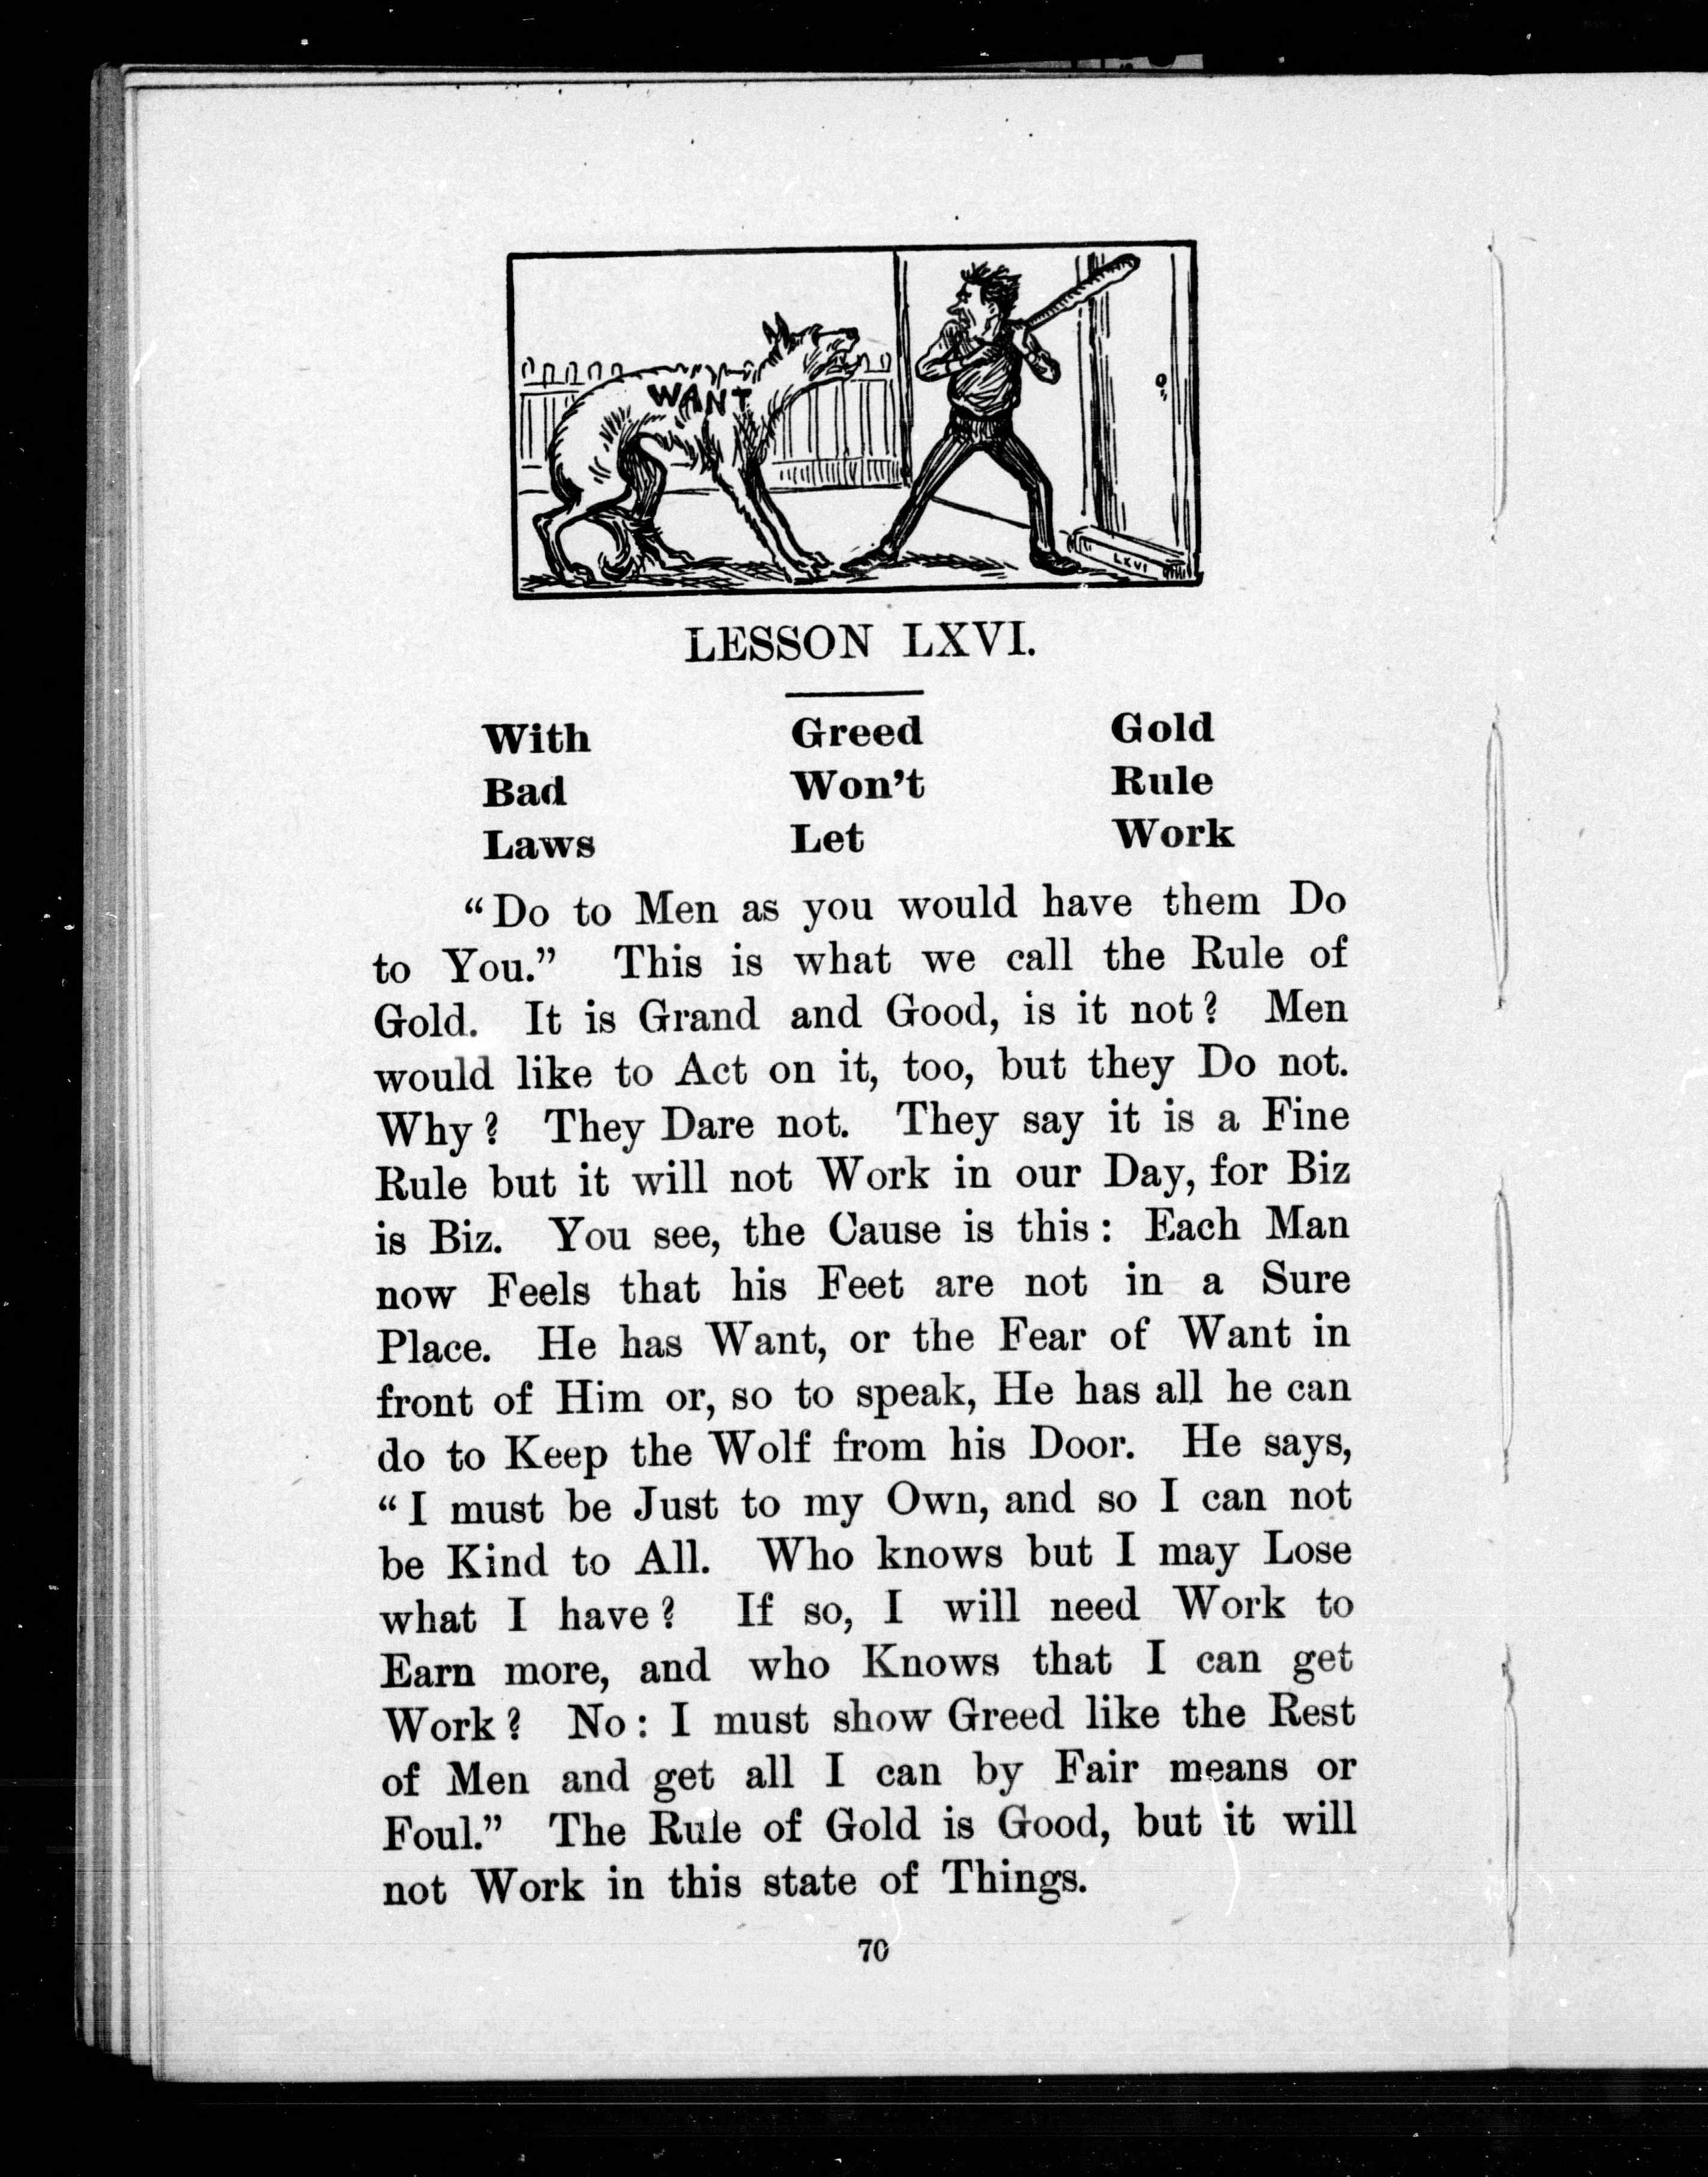 WANT
LXVI
LESSON LXVI.
With Greed Gold
Bad Won't Rule
Laws Let Work
"Do to Men as you would have them Do
to You." This is what we call the Rule of
Gold. It is Grand and Good, is it not? Men
would like to Act on it, too, but they Do not.
Why? They Dare not. They say it is a Fine
Rule but it will not Work in our Day, for Biz
is Biz. You see, the Cause is this: Each Man
now Feels that his Feet are not in a Sure
Place. He has Want, or the Fear of Want in
front of Him or, so to speak, He has all he can
do to Keep the Wolf from his Door. He says,
"I must be Just to my Own, and so I can not
be Kind to All. Who knows but I may Lose
what I have? If so, I will need Work to
Earn more, and who Knows that I can get
Work? No: I must show Greed like the Rest
of Men and get all I can by Fair means or
Foul." The Rule of Gold is Good, but it will
not Work in this state of Things.
70